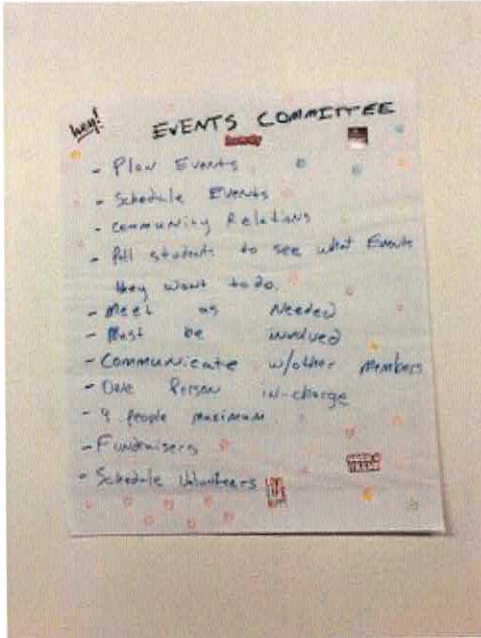 hey!
EVENTS COMMITTEE
- Plan Events
- Schedule Events
- Community Relations
- Poll students to see what Events
they want to do.
- Meet as Needed
- Must be involved
- Communicate w/other members
- One Person in-charge
- 9 people maximum
- Fundraisers
- Schedule Volunteers